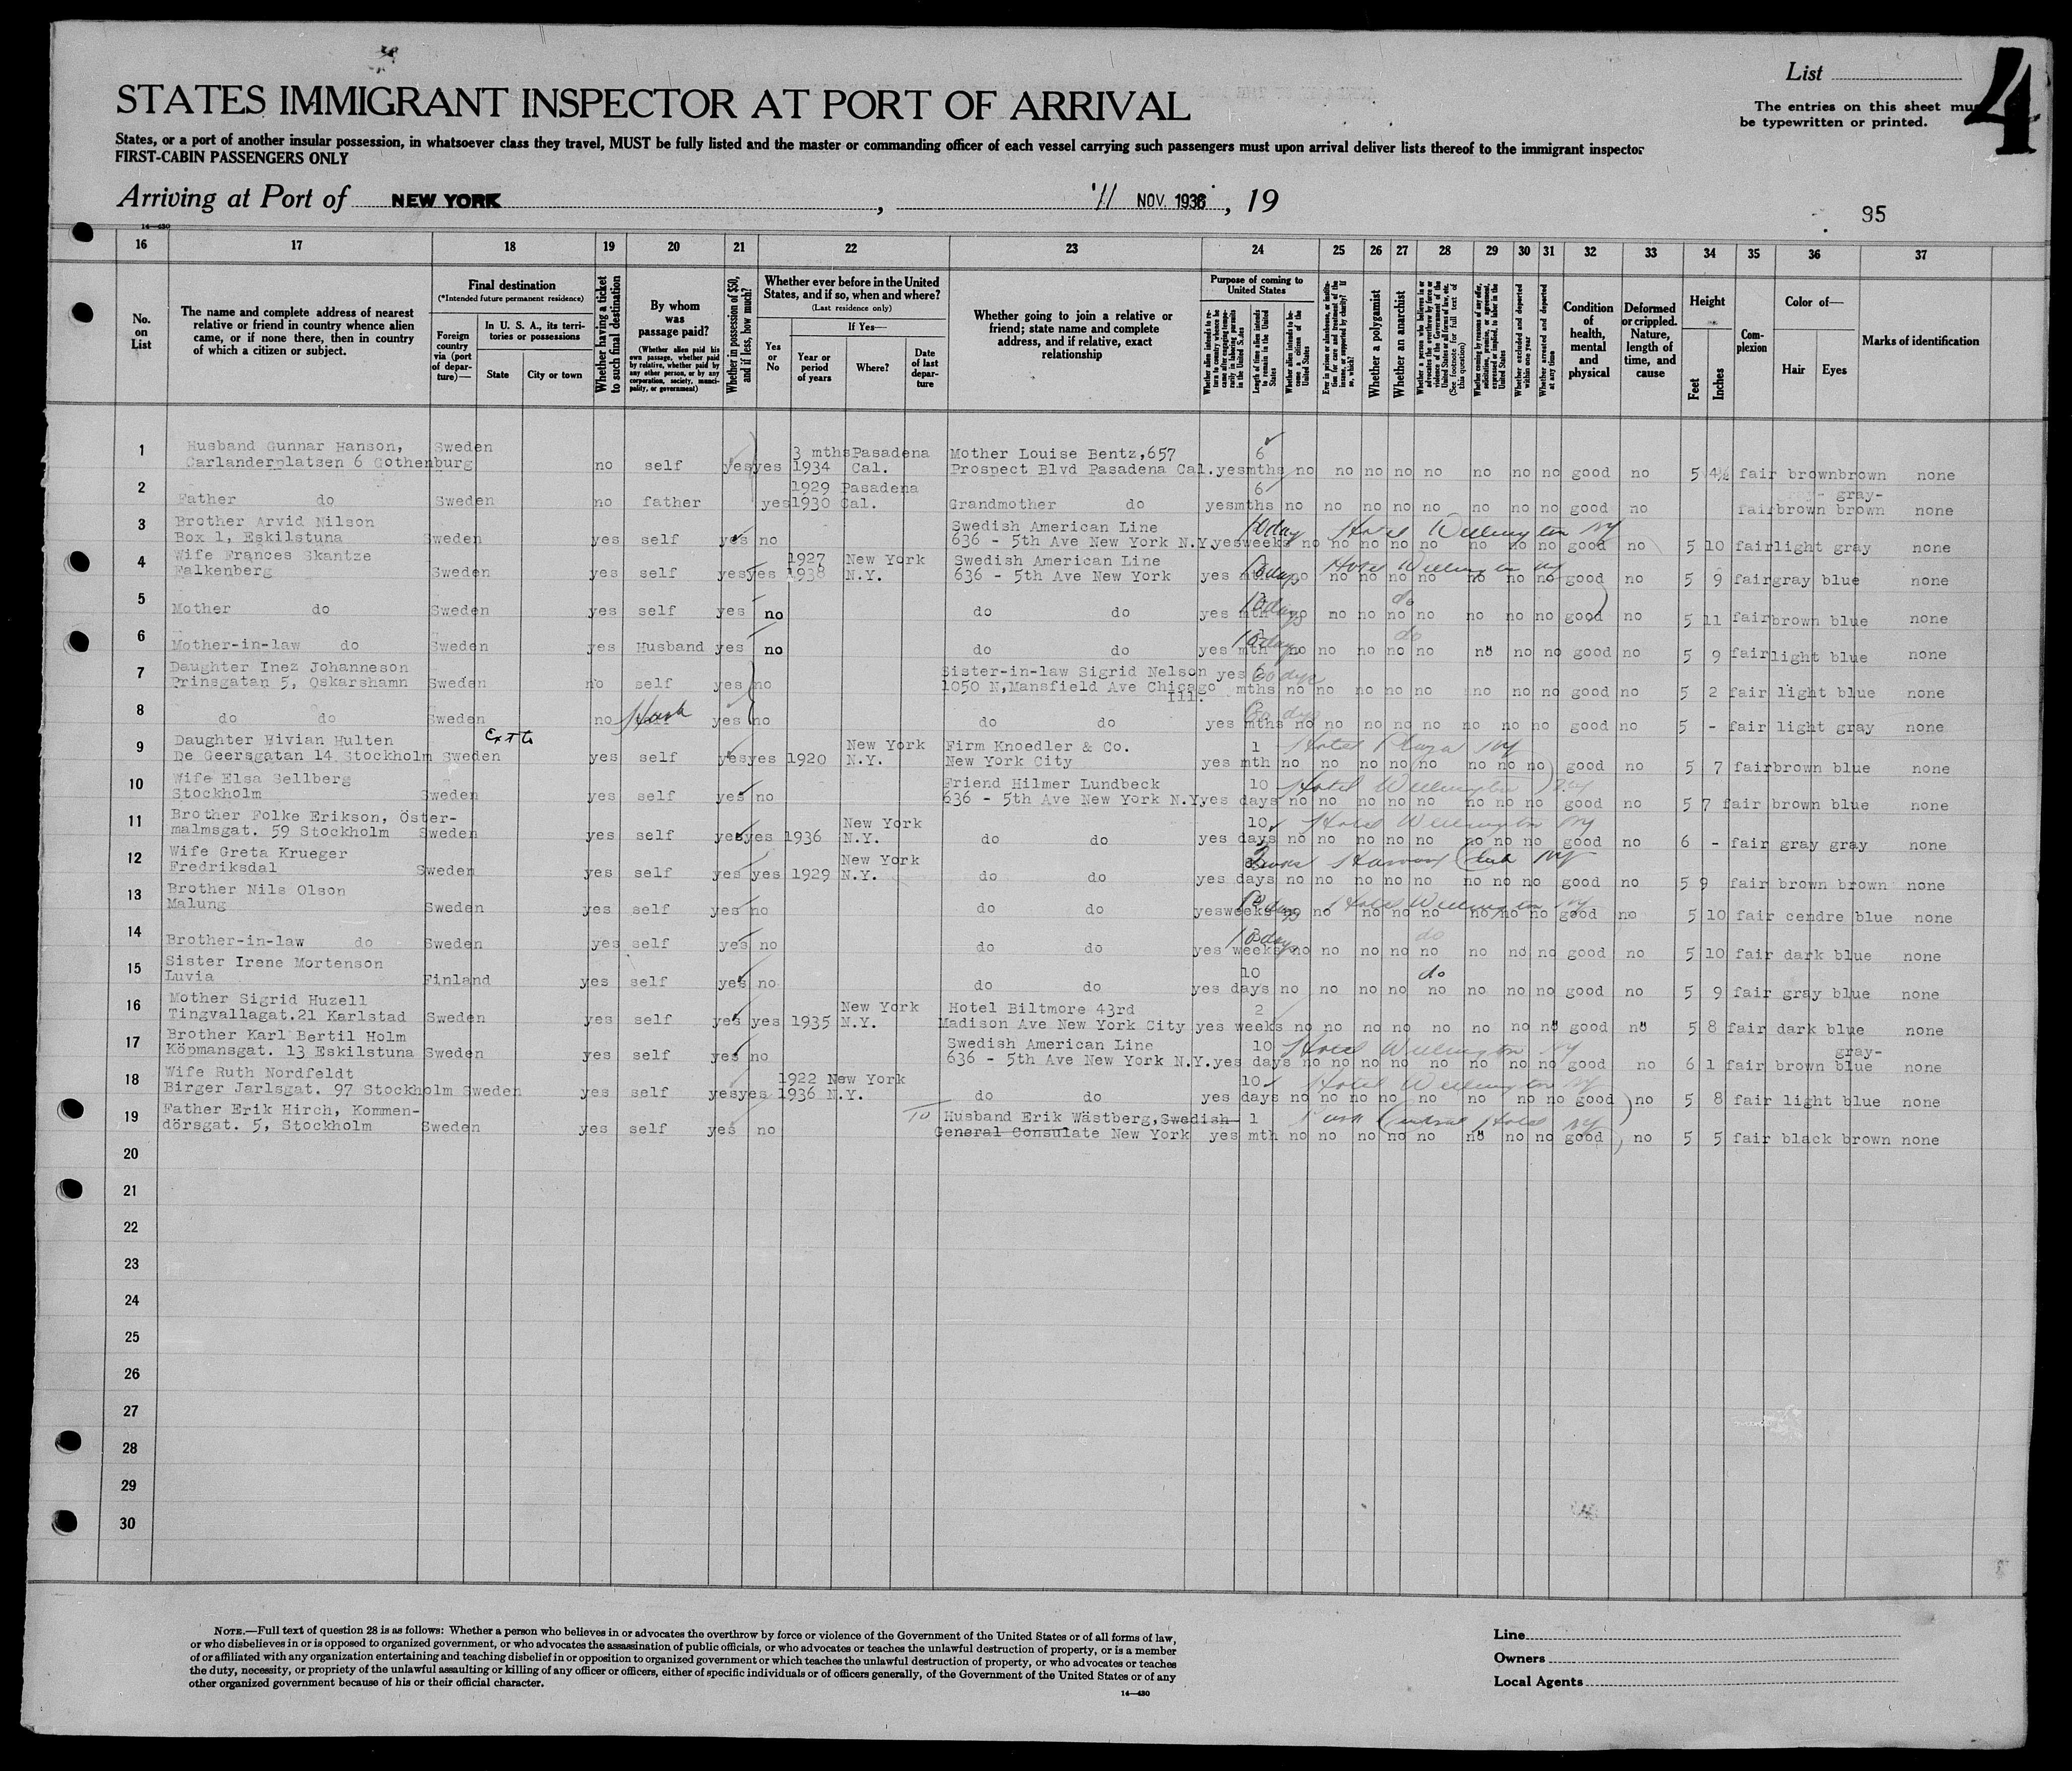 List
4
The entries on this sheet must
be typewritten or printed.
STATES IMMIGRANT INSPECTOR AT PORT OF ARRIVAL
States, or a port of another insular possession, in whatsoever class they travel, MUST be fully listed and the master or commanding officer of each vessel carrying such passengers must upon arrival deliver lists thereof to the immigrant inspector
FIRST-CABIN PASSENGERS ONLY
Arriving at Port of NEW YORK, 11 NOV. 1936, 19
95
14—430
16 17 18 19 20 21 22 23 24 25 26 27 28 29 30 31 32 33 34 35 36 37
No. on List
The name and complete address of nearest relative or friend in country whence alien came, or if none there, then in country of which a citizen or subject.
Final destination
(*Intended future permanent residence)
Foreign country via (port of departure)—
In U. S. A., its territories or possessions
State
City or town
Whether having a ticket to such final destination
By whom was passage paid?
(Whether alien paid his own passage, whether paid by relative, whether paid by any other person, or by any corporation, society, municipality, or government)
Whether in possession of $50, and if less, how much?
Whether ever before in the United States, and if so, when and where?
(Last residence only)
Yes or No
If Yes—
Year or period of years
Where?
Date of last departure
Whether going to join a relative or friend; state name and complete address, and if relative, exact relationship
Purpose of coming to United States
Length of time alien intends to remain in the United States
Whether alien intends to become a citizen of the United States
Whether a polygamist
Whether an anarchist
Whether excluded and deported within one year
Whether arrested and deported at any time
Condition of health, mental and physical
Deformed or crippled. Nature, length of time, and cause
Height
Feet
Inches
Complexion
Color of—
Hair
Eyes
Marks of identification
1 Husband Gunnar Hanson, Sweden 3 mths Pasadena Mother Louise Bentz,657 6
Carlanderplatsen 6 Gothenburg no self yes yes 1934 Cal. Prospect Blvd Pasadena Cal. yes mths no no no no no no no no good no 5 4½ fair brown brown none
2 1929 Pasadena 6 gray-
Father do Sweden no father yes 1930 Cal. Grandmother do yes mths no no no no no no no no good no fair brown brown none
3 Brother Arvid Nilson Swedish American Line 10 days Hotel Wellington NY
Box 1, Eskilstuna Sweden yes self yes no 636 - 5th Ave New York N.Y. yes weeks no no no no no no no no good no 5 10 fair light gray none
4 Wife Frances Skantze 1927 New York Swedish American Line Hotel Wellington NY
Falkenberg Sweden yes self yes yes 1938 N.Y. 636 - 5th Ave New York yes 10 days no no no no no no no no good no 5 9 fair gray blue none
5 10 days do
Mother do Sweden yes self yes no do do yes mth no no no no no no no no good no 5 11 fair brown blue none
6 10 days do
Mother-in-law do Sweden yes Husband yes no do do yes mth no no no no no no no no good no 5 9 fair light blue none
7 Daughter Inez Johanneson Sister-in-law Sigrid Nelson yes 60 days
Prinsgatan 5, Oskarshamn Sweden no self yes no 1050 N,Mansfield Ave Chicago mths no no no no no no no no good no 5 2 fair light blue none
Ill.
8 60 days
do do Sweden no Husb yes no do do yes mths no no no no no no no no good no 5 - fair light gray none
9 Daughter Vivian Hulten New York Firm Knoedler & Co. 1 Hotel Plaza NY
De Geersgatan 14 Stockholm Sweden yes self yes yes 1920 N.Y. New York City yes mth no no no no no no no no good no 5 7 fair brown blue none
10 Wife Elsa Sellberg Friend Hilmer Lundbeck 10 Hotel Wellington NY
Stockholm Sweden yes self yes no 636 - 5th Ave New York N.Y. yes days no no no no no no no no good no 5 7 fair brown blue none
11 Brother Folke Erikson, Öster- New York 10 Hotel Wellington NY
malmsgat. 59 Stockholm Sweden yes self yes yes 1936 N.Y. do do yes days no no no no no no no no good no 6 - fair gray gray none
12 Wife Greta Krueger New York Harvard Club NY
Fredriksdal Sweden yes self yes yes 1929 N.Y. do do yes days no no no no no no no no good no 5 9 fair brown brown none
13 Brother Nils Olson 10 days Hotel Wellington NY
Malung Sweden yes self yes no do do yes weeks no no no no no no no no good no 5 10 fair cendre blue none
14 10 days do
Brother-in-law do Sweden yes self yes no do do yes weeks no no no no no no no no good no 5 10 fair dark blue none
15 Sister Irene Mortenson 10 do
Luvia Finland yes self yes no do do yes days no no no no no no no no good no 5 9 fair gray blue none
16 Mother Sigrid Huzell New York Hotel Biltmore 43rd 2
Tingvallagat.21 Karlstad Sweden yes self yes yes 1935 N.Y. Madison Ave New York City yes weeks no no no no no no no no good no 5 8 fair dark blue none
17 Brother Karl Bertil Holm Swedish American Line 10 Hotel Wellington NY gray-
Köpmansgat. 13 Eskilstuna Sweden yes self yes no 636 - 5th Ave New York N.Y. yes days no no no no no no no no good no 6 1 fair brown blue none
18 Wife Ruth Nordfeldt 1922 New York 10 Hotel Wellington NY
Birger Jarlsgat. 97 Stockholm Sweden yes self yes yes 1936 N.Y. do do yes days no no no no no no no no good no 5 8 fair light blue none
19 Father Erik Hirch, Kommen- To Husband Erik Wästberg, Swedish 1 Park Central Hotel NY
dörsgat. 5, Stockholm Sweden yes self yes no General Consulate New York yes mth no no no no no no no no good no 5 5 fair black brown none
20
21
22
23
24
25
26
27
28
29
30
NOTE.—Full text of question 28 is as follows: Whether a person who believes in or advocates the overthrow by force or violence of the Government of the United States or of all forms of law,
or who disbelieves in or is opposed to organized government, or who advocates the assassination of public officials, or who advocates or teaches the unlawful destruction of property, or is a member
of or affiliated with any organization entertaining and teaching disbelief in or opposition to organized government or which teaches the unlawful destruction of property, or who advocates or teaches
the duty, necessity, or propriety of the unlawful assaulting or killing of any officer or officers, either of specific individuals or of officers generally, of the Government of the United States or of any
other organized government because of his or their official character.
14—430
Line
Owners
Local Agents